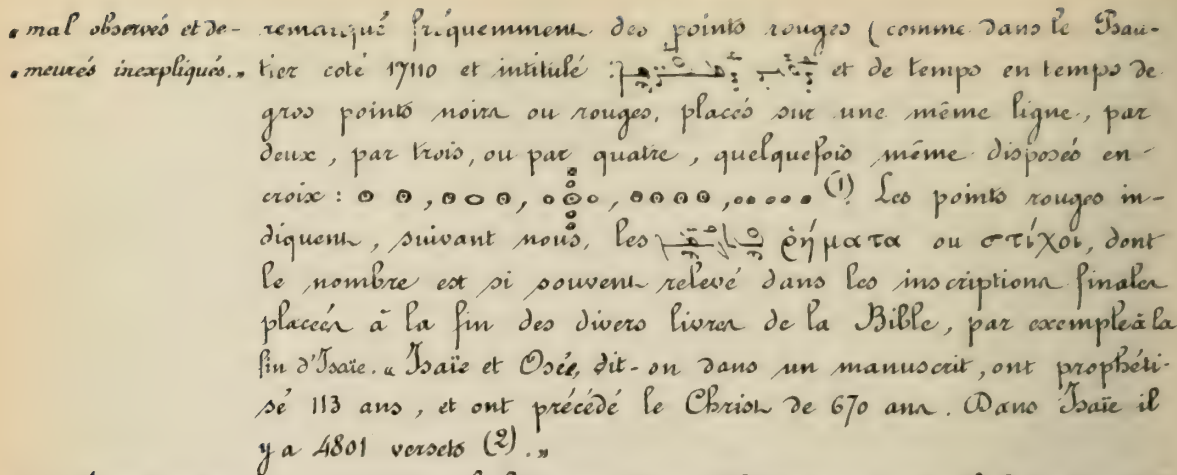 « mal observés et de-
« meurés inexpliqués. »
remarqué fréquemment des points rouges (comme dans le Psau-
tier coté 17110 et intitulé : et de temps en temps de
gros points noirs ou rouges, placés sur une même ligne, par
deux, par trois, ou par quatre, quelquefois même disposés en
croix : (1) Les points rouges in-
diquent, suivant nous, les ῥήματα ou στίχοι, dont
le nombre est si souvent relevé dans les inscriptions finales
placées à la fin des divers livres de la Bible, par exemple à la
fin d'Isaïe. « Isaïe et Osée, dit-on dans un manuscrit, ont prophéti-
sé 113 ans, et ont précédé le Christ de 670 ans. Dans Isaïe il
y a 4801 versets (2). »